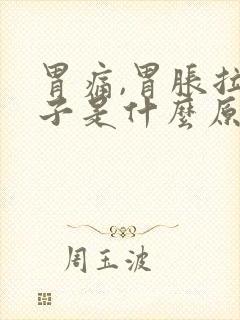 胃痛,胃脹拉
子是什麼原
周玉波